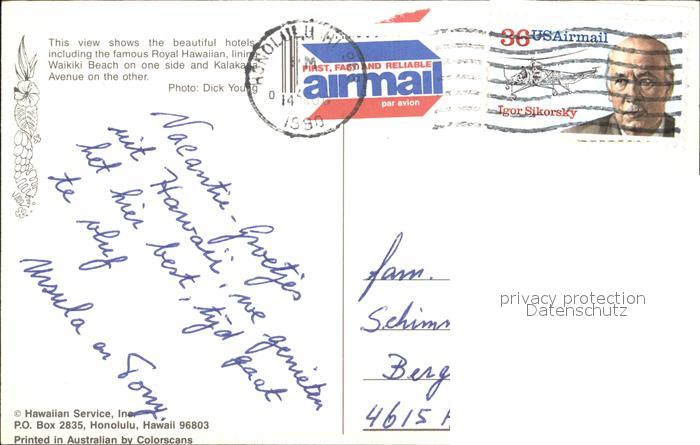 This view shows the beautiful hotels
including the famous Royal Hawaiian, lining
Waikiki Beach on one side and Kalakaua
Avenue on the other.
Photo: Dick Young
HONOLULU HI
PM
14
1990
FIRST, FAST AND RELIABLE
airmail
par avion
36 USAirmail
Igor Sikorsky
Vacantie-Groetjes
uit Hawaii, we genieten
het hier best, tijd gaat
te vlug
Ursula en Tony.
fam.
Schimm
Berg
4615
privacy protection
Datenschutz
© Hawaiian Service, Inc.
P.O. Box 2835, Honolulu, Hawaii 96803
Printed in Australian by Colorscans